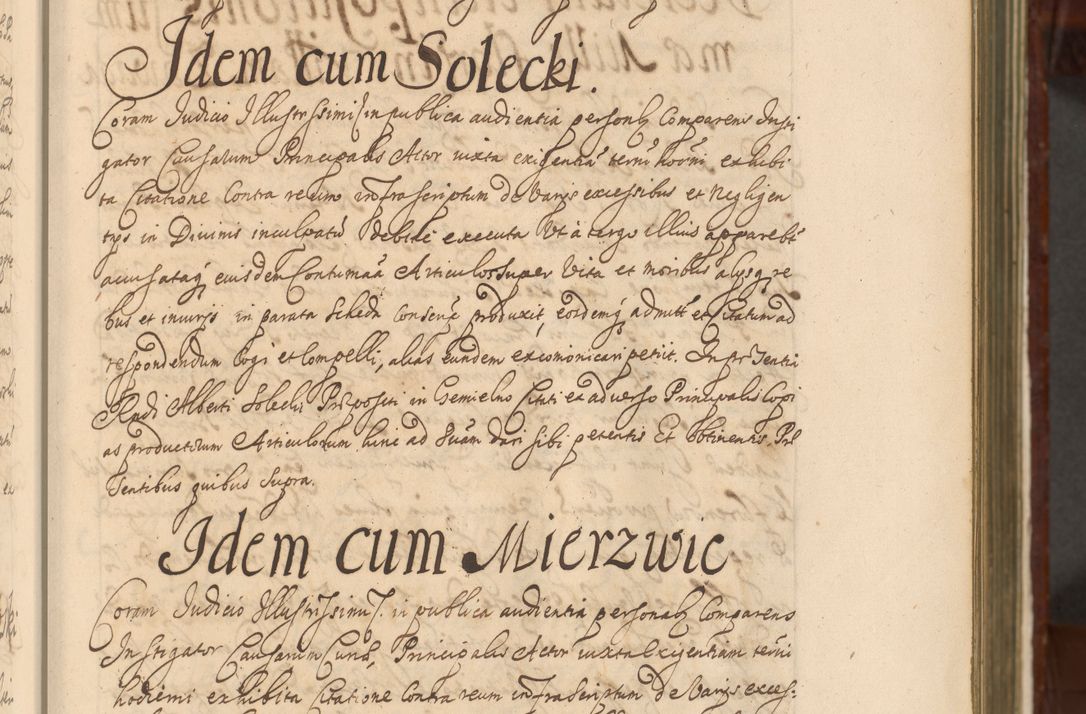 Idem cum Solecki.
Coram Judicio Illustrissimi in publica audientia personalr Comparens Insti
gator Causarum Principalis Actor iuxta exigentia termi hodni exhibi
ta Citatione Contra reum infrascriptum de Varijs excessibus et Negligen
tijs in Divinis inculpatu debite executa Ut à tergo illius apparebt
accusataq eiusdem Contumaa Articulos super Vita et moribus alijsq re
bus et iniurijs in parata Scheda Consenq produxit, eosdemq admitt et Citatum ad
respondendum Cogi et Compelli, alias eundem excomonicari petijt. In prsentia
Rndi Alberti Solecki Præpositi in Gemielno Citati ex adverso Principalis Copi
as productorum Articulorum hinc ad Suam dari sibi petentis Et Obtinentis. Præ
sentibus quibus Supra.
Idem cum Mierzwic
Coram Judicio Illustrissimi in publica audientia personalr Comparens
Instigator Causarum Curiæ, Principalis Actor iuxta Exigentiam termi
hodierni exhibita Citatione Contra reum infrascriptum de Varijs exces: